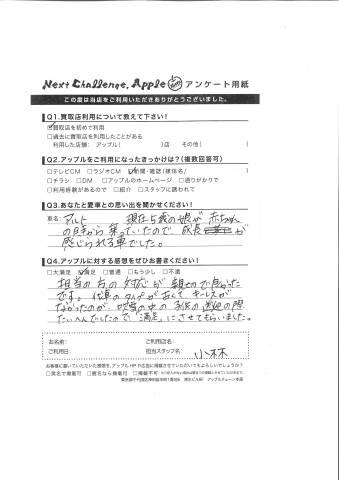 Next Challenge, Apple アンケート用紙
この度は当店をご利用いただきありがとうございました。
Q1.買取店利用について教えて下さい?
☑買取店を初めて利用
□過去に買取店を利用したことがある
利用した店舗: アップル( )店 その他( )
Q2.アップルをご利用になったきっかけは?(複数回答可)
□テレビCM □ラジオCM ☑新聞・雑誌(媒体名/ )
□チラシ □DM □アップルのホームページ □通りがかりで
□利用経験があるので □紹介 □スタッフに誘われて
Q3.あなたと愛車との思い出を聞かせください!
車名: アルト 現在5歳の娘が赤ちゃん
の時から乗っていたので、成長が
感じられる車でした。
Q4.アップルに対する感想をぜひお書きください!
□大満足 ☑満足 □普通 □もう少し □不満
担当の方の対応が親切で良かった
です。代車のタイプが古くてキーレスが
なかったのが、吹雪の中の子供の送迎の際
たいへんでしたので「満足」にさせてもらいました。
お名前: ご利用店名:
ご利用日: 担当スタッフ名: 小林
お客様に書いていただいた感想を、アップルHPや広告に掲載させていただいてもよろしいでしょうか?
□実名で掲載可 □匿名なら掲載可 □掲載不可